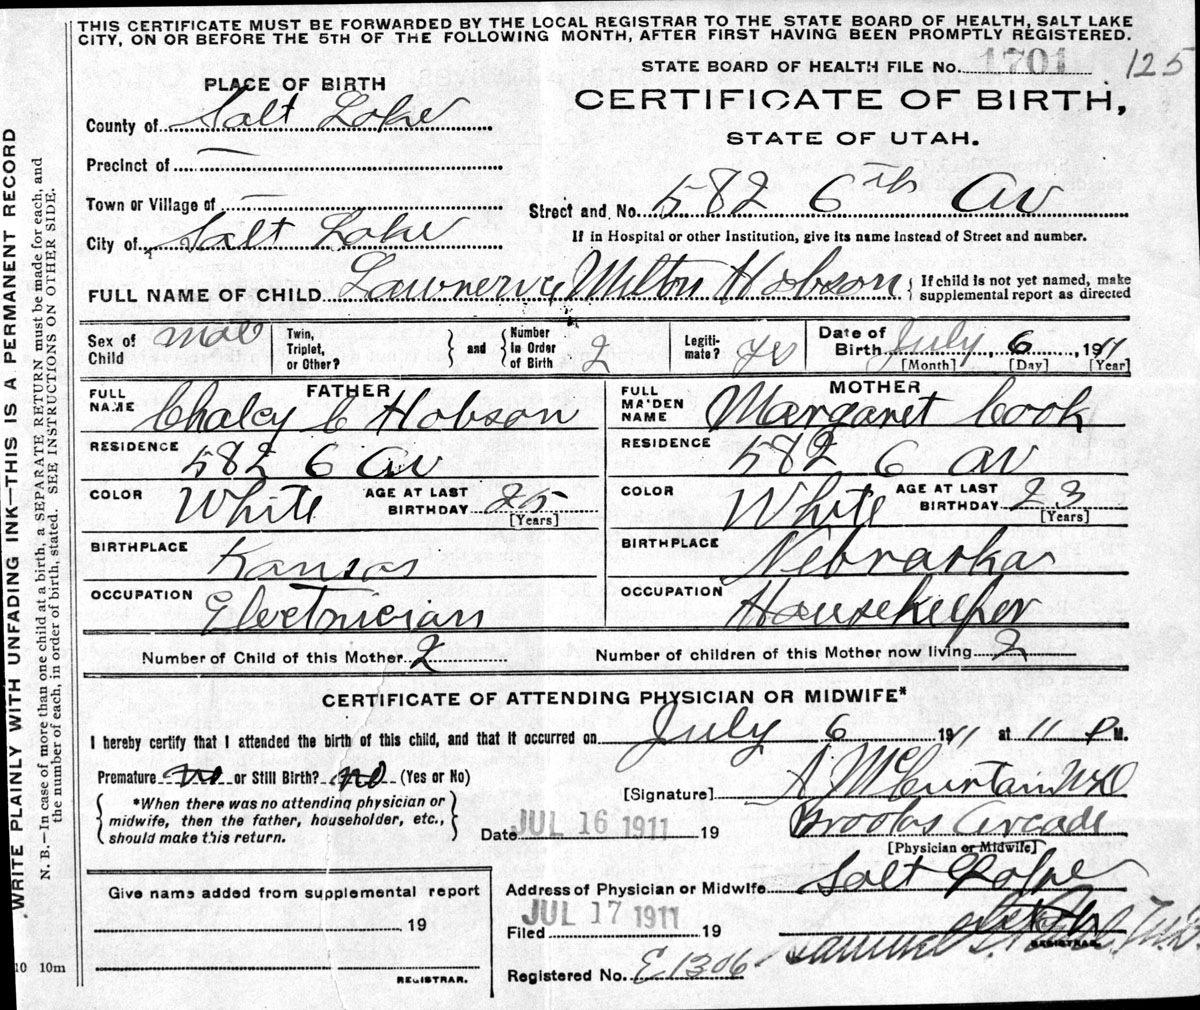 THIS CERTIFICATE MUST BE FORWARDED BY THE LOCAL REGISTRAR TO THE STATE BOARD OF HEALTH, SALT LAKE
CITY, ON OR BEFORE THE 5TH OF THE FOLLOWING MONTH, AFTER FIRST HAVING BEEN PROMPTLY REGISTERED.
STATE BOARD OF HEALTH FILE No. 1701 125
PLACE OF BIRTH
CERTIFICATE OF BIRTH,
STATE OF UTAH.
County of Salt Lake
Precinct of —
Town or Village of —
Street and No. 582 6th Av
City of Salt Lake
If in Hospital or other Institution, give its name instead of Street and number.
FULL NAME OF CHILD Milton Hobson
{ If child is not yet named, make
supplemental report as directed
Sex of
Child male
Twin,
Triplet,
or Other?
} and {
Number
in Order
of Birth 2
Legiti-
mate? yes
Date of
Birth July, 6, 1911
[Month] [Day] [Year]
FATHER
FULL
NAME Chaley C Hobson
RESIDENCE 582 6 Av
COLOR White
AGE AT LAST
BIRTHDAY 25
[Years]
BIRTHPLACE Kansas
OCCUPATION Electrician
MOTHER
FULL
MAIDEN
NAME Margaret Cook
RESIDENCE 582 6 Av
COLOR White
AGE AT LAST
BIRTHDAY 23
[Years]
BIRTHPLACE Nebraska
OCCUPATION Housekeeper
Number of Child of this Mother 2
Number of children of this Mother now living 2
CERTIFICATE OF ATTENDING PHYSICIAN OR MIDWIFE*
I hereby certify that I attended the birth of this child, and that it occurred on July 6 1911 at 11 P M.
Premature no or Still Birth? no (Yes or No)
{ *When there was no attending physician or
midwife, then the father, householder, etc.,
should make this return. }
[Signature] A McCurtain MD
Date JUL 16 1911 19
Brooks Arcade
[Physician or Midwife]
Give name added from supplemental report
19
REGISTRAR.
Address of Physician or Midwife Salt Lake
Filed JUL 17 1911 19
REGISTRAR.
Registered No. E1306
WRITE PLAINLY WITH UNFADING INK—THIS IS A PERMANENT RECORD
N. B.—In case of more than one child at a birth, a SEPARATE RETURN must be made for each, and
the number of each, in order of birth, stated. SEE INSTRUCTIONS ON OTHER SIDE.
10 10m